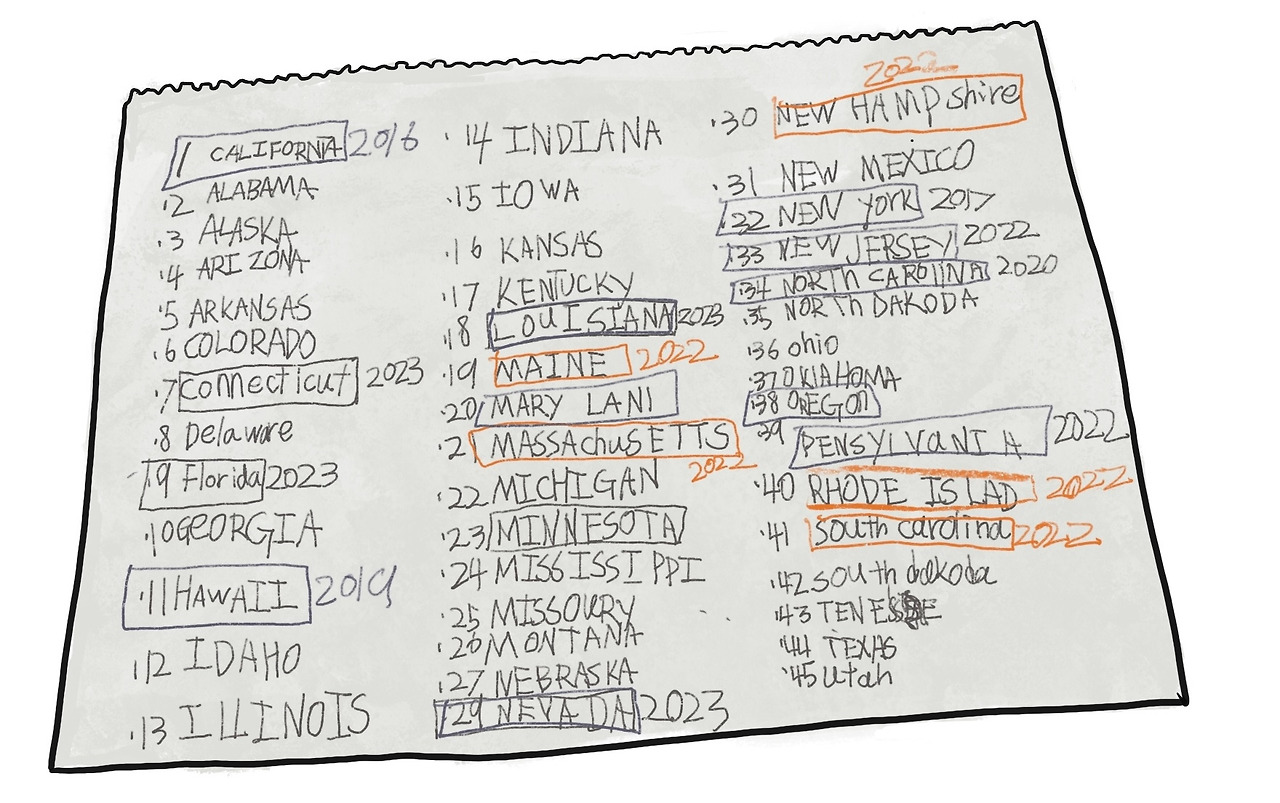 1 CALIFORNIA 2016
.2 ALABAMA
.3 ALASKA
.4 ARIZONA
.5 ARKANSAS
.6 COLORADO
.7 connecticut 2023
.8 Delaware
.9 Florida 2023
.10 GEORGIA
.11 HAWAII 2019
.12 IDAHO
.13 ILLINOIS
.14 INDIANA
.15 IOWA
.16 KANSAS
.17 KENTUCKY
.18 LOUISIANA 2023
.19 MAINE 2022
.20 MARY LANI
.21 MASSAchuSETTS
2022
.22 MICHIGAN
.23 MINNESOTA
.24 MISSISSIPPI
.25 MISSOURY
.26 MONTANA
.27 NEBRASKA
.29 NEVADA 2023
2022
.30 NEW HAMPshire
.31 NEW MEXICO
.32 NEW york 2017
.33 NEW JERSEY 2022
.34 NORTH CAROlINA 2020
.35 NORTh DAKODA
.36 ohio
.37 OKlAHOMA
.38 OREGOn
.39 PENSYLVaNIA 2022
.40 RHODE ISLAD 2022
.41 south carolina 2022
.42 south dakoda
.43
.44 TEXAS
.45 utah